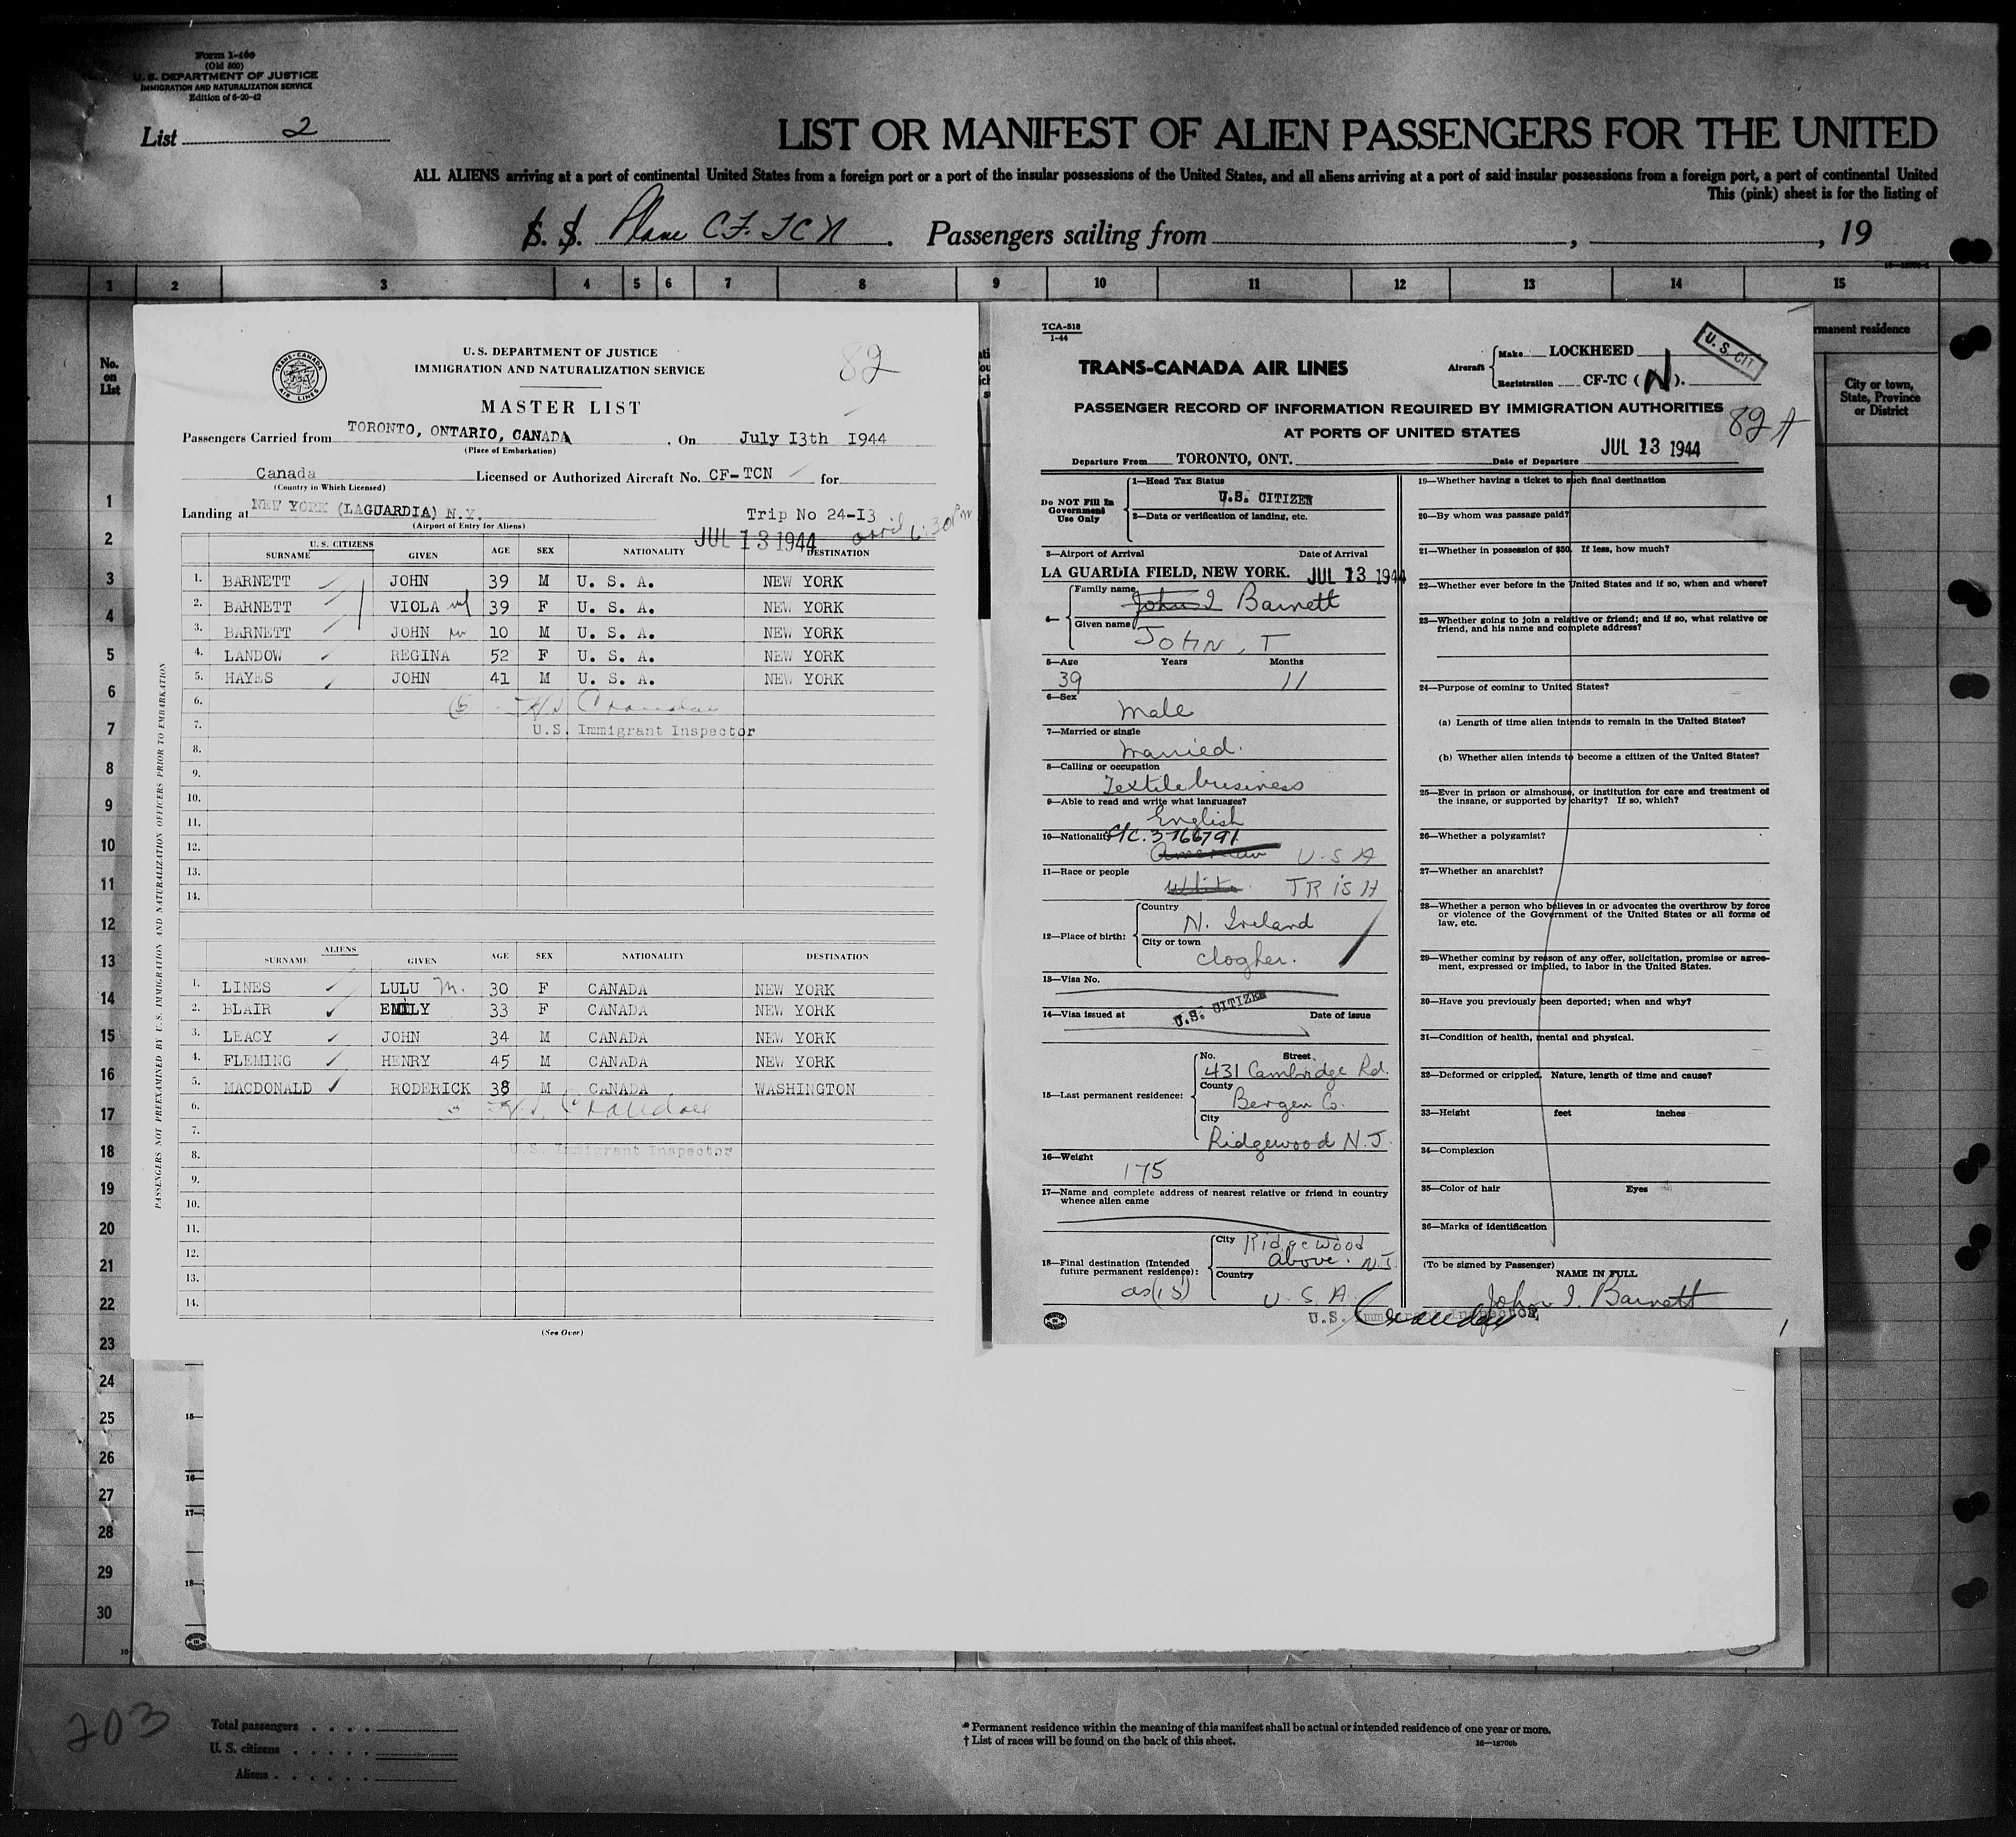 Form I-400
(Old 500)
U. S. DEPARTMENT OF JUSTICE
IMMIGRATION AND NATURALIZATION SERVICE
Edition of 6-20-42
List 2
LIST OR MANIFEST OF ALIEN PASSENGERS FOR THE UNITED
ALL ALIENS arriving at a port of continental United States from a foreign port or a port of the insular possessions of the United States, and all aliens arriving at a port of said insular possessions from a foreign port, a port of continental United
This (pink) sheet is for the listing of
S. S. Plane CF. TCN . Passengers sailing from , , 19
1 2 3 4 5 6 7 8 9 10 11 12 13 14 15
No. on List
rmanent residence
City or town, State, Province or District
1
2
3
4
5
6
7
8
9
10
11
12
13
14
15
16
17
18
19
20
21
22
23
24
25
26
27
28
29
30
TRANS-CANADA AIR LINES
U. S. DEPARTMENT OF JUSTICE
IMMIGRATION AND NATURALIZATION SERVICE
82
MASTER LIST
Passengers Carried from TORONTO, ONTARIO, CANADA , On July 13th 1944
(Place of Embarkation)
Canada Licensed or Authorized Aircraft No. CF-TCN for
(Country in Which Licensed)
Landing at NEW YORK (LAGUARDIA) N.Y. Trip No 24-13
(Airport of Entry for Aliens)
JUL 13 1944 6:30 Pm
U. S. CITIZENS
SURNAME GIVEN AGE SEX NATIONALITY DESTINATION
1. BARNETT JOHN 39 M U. S. A. NEW YORK
2. BARNETT VIOLA 39 F U. S. A. NEW YORK
3. BARNETT JOHN 10 M U. S. A. NEW YORK
4. LANDOW REGINA 52 F U. S. A. NEW YORK
5. HAYES JOHN 41 M U. S. A. NEW YORK
6.
7. U.S. Immigrant Inspector
8.
9.
10.
11.
12.
13.
14.
ALIENS
SURNAME GIVEN AGE SEX NATIONALITY DESTINATION
1. LINES LULU M. 30 F CANADA NEW YORK
2. BLAIR EMILY 33 F CANADA NEW YORK
3. LEACY JOHN 34 M CANADA NEW YORK
4. FLEMING HENRY 45 M CANADA NEW YORK
5. MACDONALD RODERICK 38 M CANADA WASHINGTON
6. Crandall
7.
8. U.S. Immigrant Inspector
9.
10.
11.
12.
13.
14.
(See Over)
PASSENGERS NOT PREEXAMINED BY U.S. IMMIGRATION AND NATURALIZATION OFFICERS PRIOR TO EMBARKATION
15—
16—
17—
18—
TCA-518
1-44
TRANS-CANADA AIR LINES
Aircraft
Make LOCKHEED
Registration CF-TC ( N ).
U. S. CIT.
PASSENGER RECORD OF INFORMATION REQUIRED BY IMMIGRATION AUTHORITIES
AT PORTS OF UNITED STATES
82 A
JUL 13 1944
Departure From TORONTO, ONT. Date of Departure
Do NOT Fill In Government Use Only
1—Head Tax Status
U.S. CITIZEN
2—Data or verification of landing, etc.
3—Airport of Arrival Date of Arrival
LA GUARDIA FIELD, NEW YORK. JUL 13 1944
4—
Family name John I Barnett
Given name JOHN, I
5—Age Years Months
39 11
6—Sex
male
7—Married or single
married.
8—Calling or occupation
Textile business
9—Able to read and write what languages?
English
10—Nationality C/C. 3766791
American U.S.A
11—Race or people
White. IRISH
12—Place of birth:
Country
N. Ireland
City or town
clogher.
13—Visa No.
14—Visa issued at U.S. CITIZEN Date of issue
15—Last permanent residence:
No. Street
431 Cambridge Rd.
County
Bergen Co.
City
Ridgewood N.J.
16—Weight
175
17—Name and complete address of nearest relative or friend in country
whence alien came
18—Final destination (Intended
future permanent residence):
as (15)
City Ridgewood
above. N.J
Country
U.S.A.
19—Whether having a ticket to such final destination
20—By whom was passage paid?
21—Whether in possession of $50. If less, how much?
22—Whether ever before in the United States and if so, when and where?
23—Whether going to join a relative or friend; and if so, what relative or
friend, and his name and complete address?
24—Purpose of coming to United States?
(a) Length of time alien intends to remain in the United States?
(b) Whether alien intends to become a citizen of the United States?
25—Ever in prison or almshouse, or institution for care and treatment of
the insane, or supported by charity? If so, which?
26—Whether a polygamist?
27—Whether an anarchist?
28—Whether a person who believes in or advocates the overthrow by force
or violence of the Government of the United States or all forms of
law, etc.
29—Whether coming by reason of any offer, solicitation, promise or agree-
ment, expressed or implied, to labor in the United States.
30—Have you previously been deported; when and why?
31—Condition of health, mental and physical.
32—Deformed or crippled. Nature, length of time and cause?
33—Height feet inches
34—Complexion
35—Color of hair Eyes
36—Marks of identification
(To be signed by Passenger)
NAME IN FULL
John I. Barnett
U.S. Immigrant Inspector
Crandall
1
203
Total passengers
U. S. citizens
Aliens
* Permanent residence within the meaning of this manifest shall be actual or intended residence of one year or more.
† List of races will be found on the back of this sheet.
16—18709b